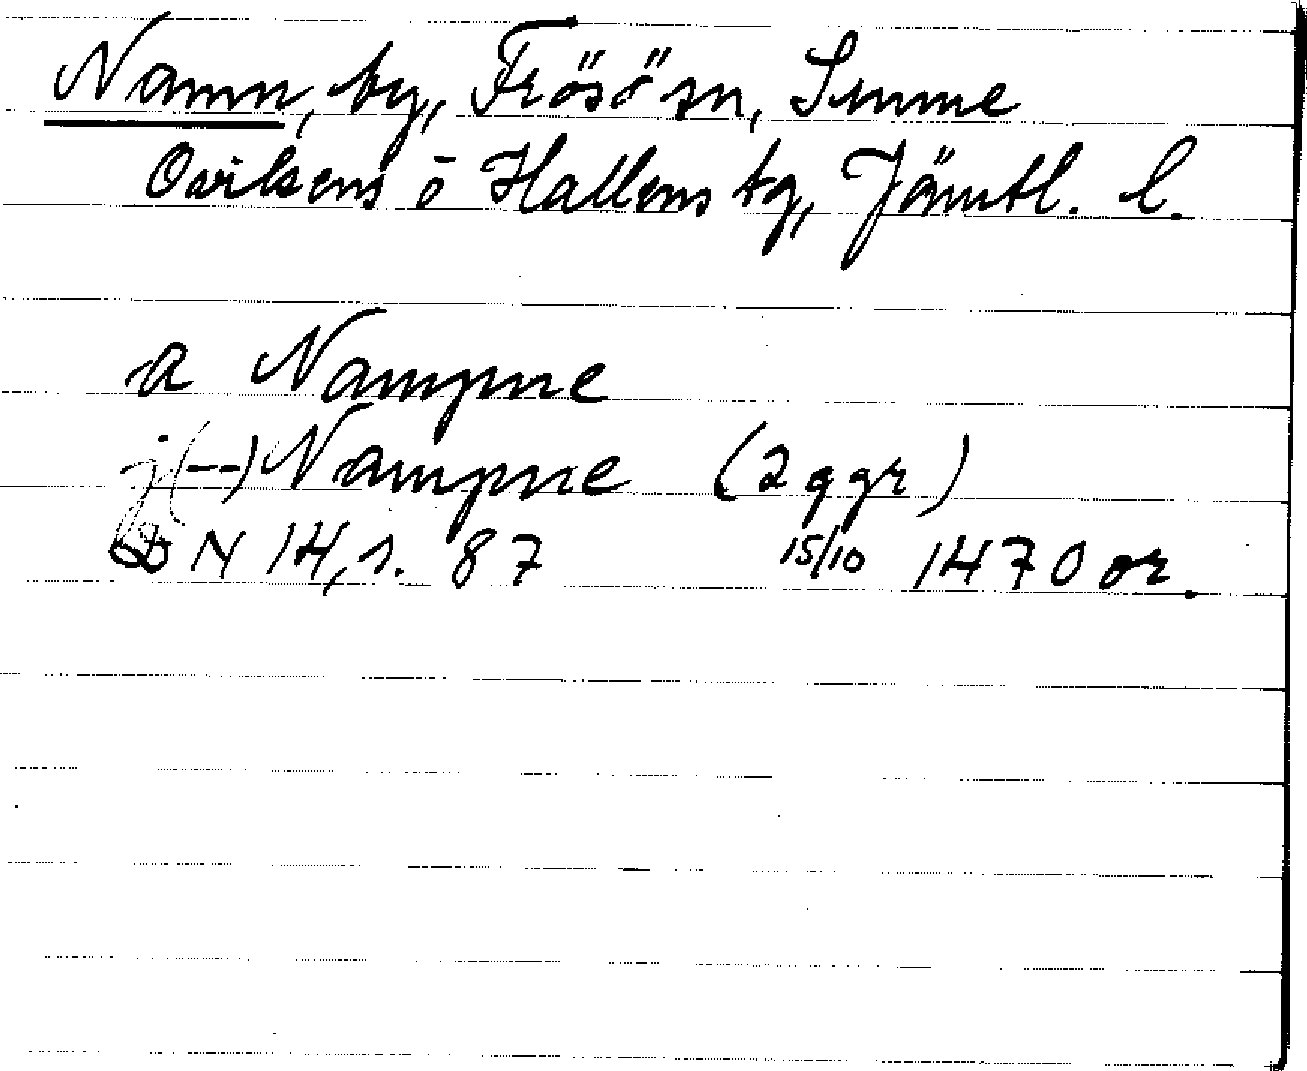 Namn, by, Frösö sn, Sunne
Oviksens o Hallens tg, Jämtl. l.
a Nampne
j (--) Nampne (2 ggr)
DN 14, s. 87 15/10 1470 or.